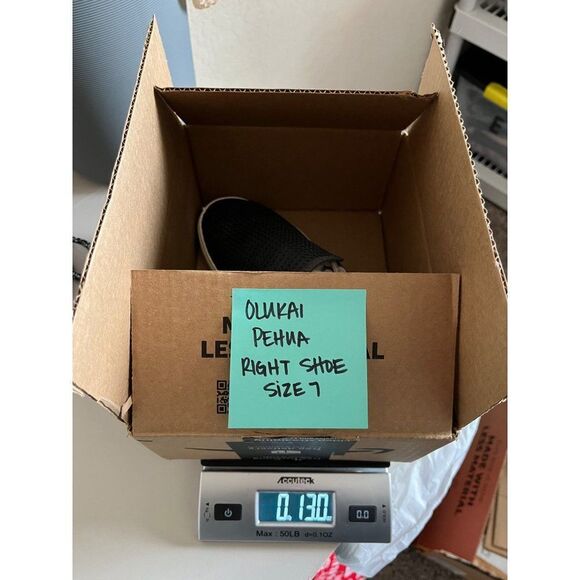 OLUKAI
PEHUA
RIGHT SHOE
SIZE 7
Accutec
0.13.0
0.0
Max : 50LB d=0.1OZ
MADE WITH
LESS MATERIAL